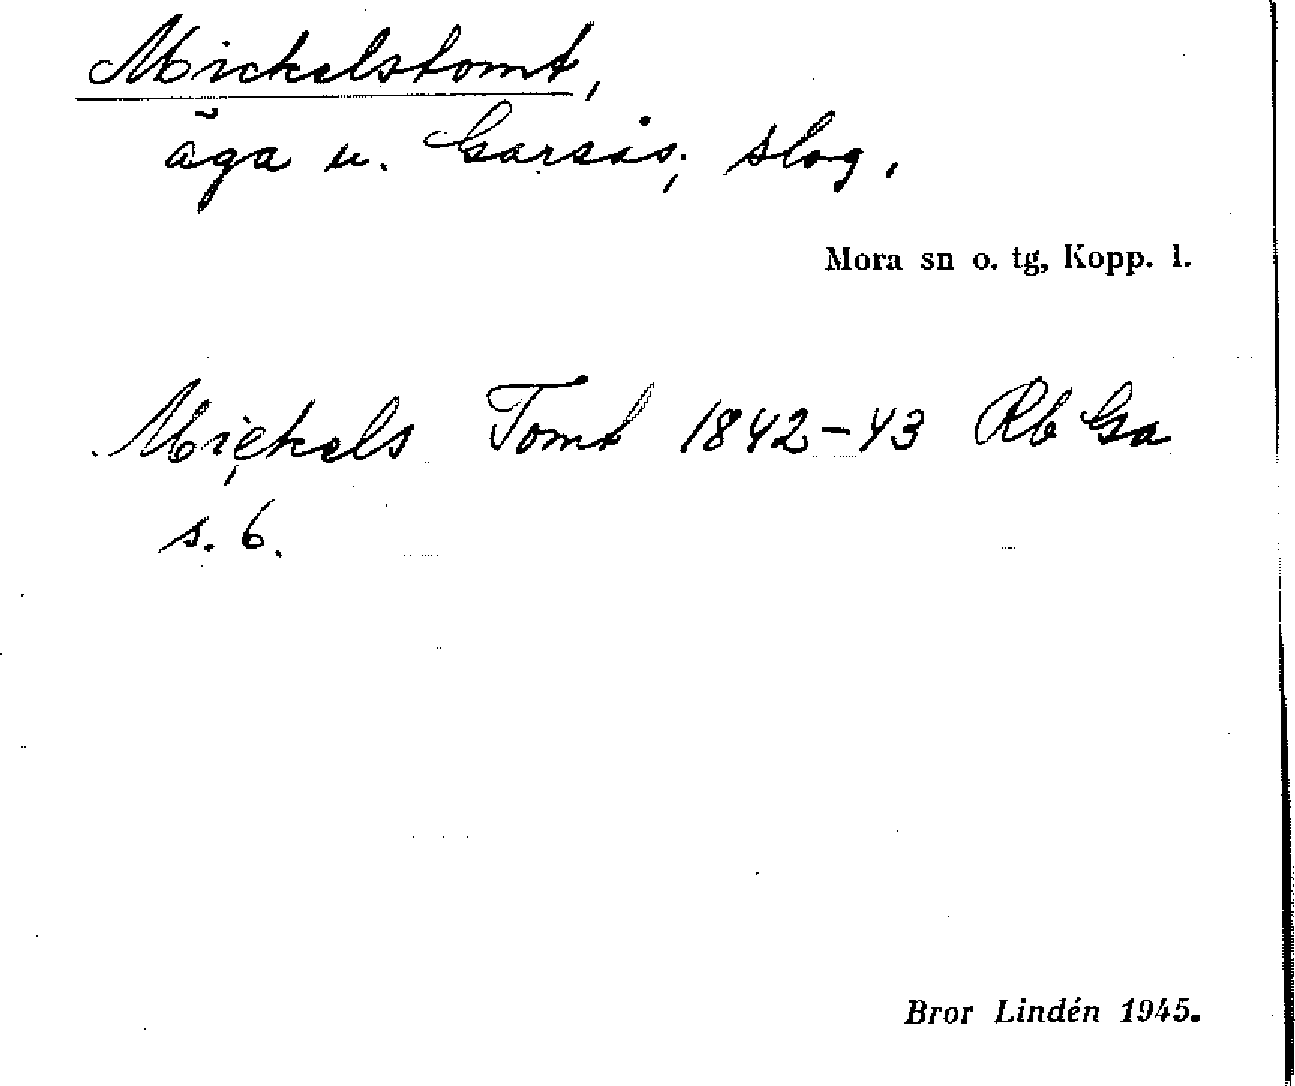 Mickelstomt,
äga u. Garsås; slog.
Mora sn o. tg, Kopp. l.
Mickels Tomt 1842-43 Rb Ga
s. 6.
Bror Lindén 1945.